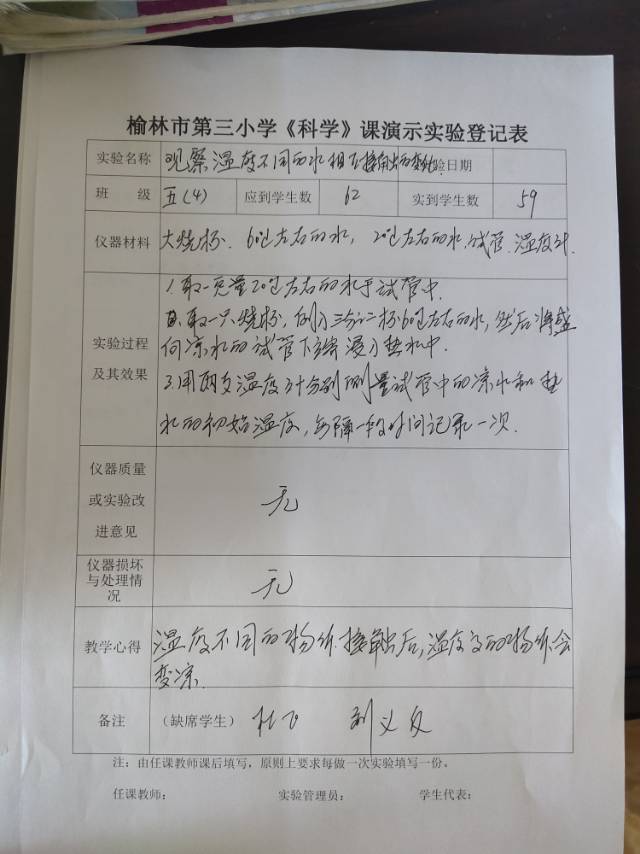 榆林市第三小学《科学》课演示实验登记表
实验名称 观察温度不同的水相互接触的变化 验日期
班 级 五(4) 应到学生数 62 实到学生数 59
仪器材料 大烧杯. 60℃左右的水, 20℃左右的水, 试管. 温度计.
实验过程及其效果
1. 取一定量20℃左右的水于试管中.
取一只烧杯, 倒入三分之二杯60℃左右的水, 然后将盛
有凉水的试管下端浸入热水中.
3. 用两支温度计分别测量试管中的凉水和热
水的初始温度, 每隔一段时间记录一次.
仪器质量
或实验改
进意见
无
仪器损坏
与处理情
况
无
教学心得 温度不同的物体接触后, 温度高的物体会
变凉.
备注 (缺席学生) 杜飞 刘义
注：由任课教师课后填写，原则上要求每做一次实验填写一份。
任课教师： 实验管理员： 学生代表：